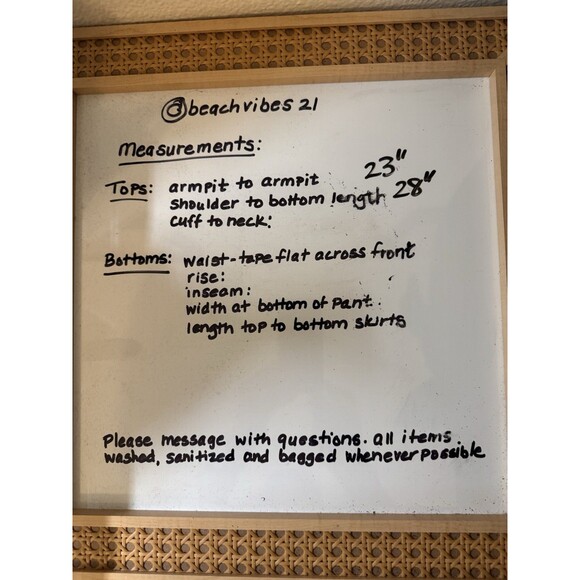 @beachvibes 21
Measurements:
Tops: armpit to armpit: 23"
shoulder to bottom length 28"
cuff to neck:
Bottoms: waist-tape flat across front
rise:
inseam:
width at bottom of pant:
length top to bottom skirts
Please message with questions. all items
washed, sanitized and bagged whenever possible